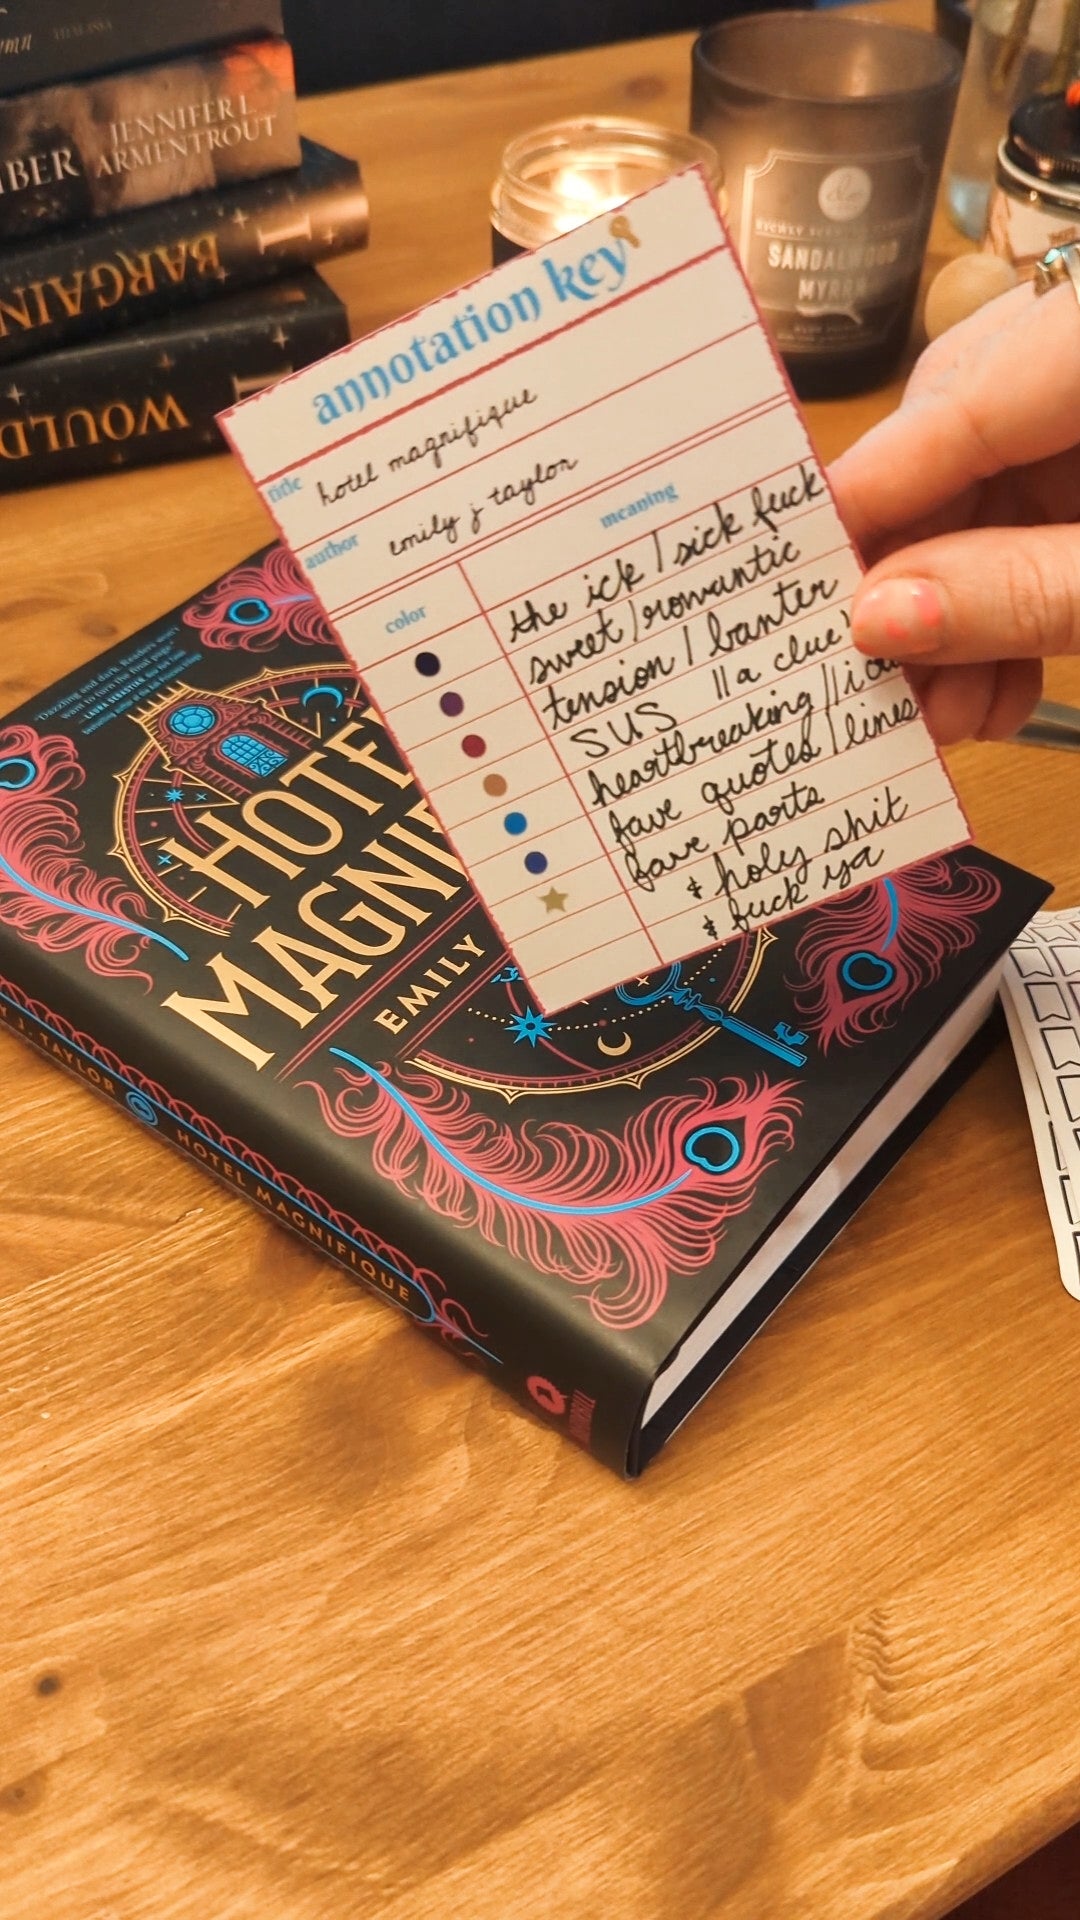 JENNIFER L.
ARMENTROUT
BARGAIN
WOULD
SANDALWOOD
MYRRH
annotation key
title hotel magnifique
author emily j taylor
color meaning
the ick / sick fuck
sweet/romantic
tension / banter
SUS // a clue!
heartbreaking //
fave quotes / lines
fave parts
& holy shit
& fuck ya
"Dazzling and dark. Readers won't
want to turn the final page."
HOTE
MAGNI
EMILY
J. TAYLOR HOTEL MAGNIFIQUE